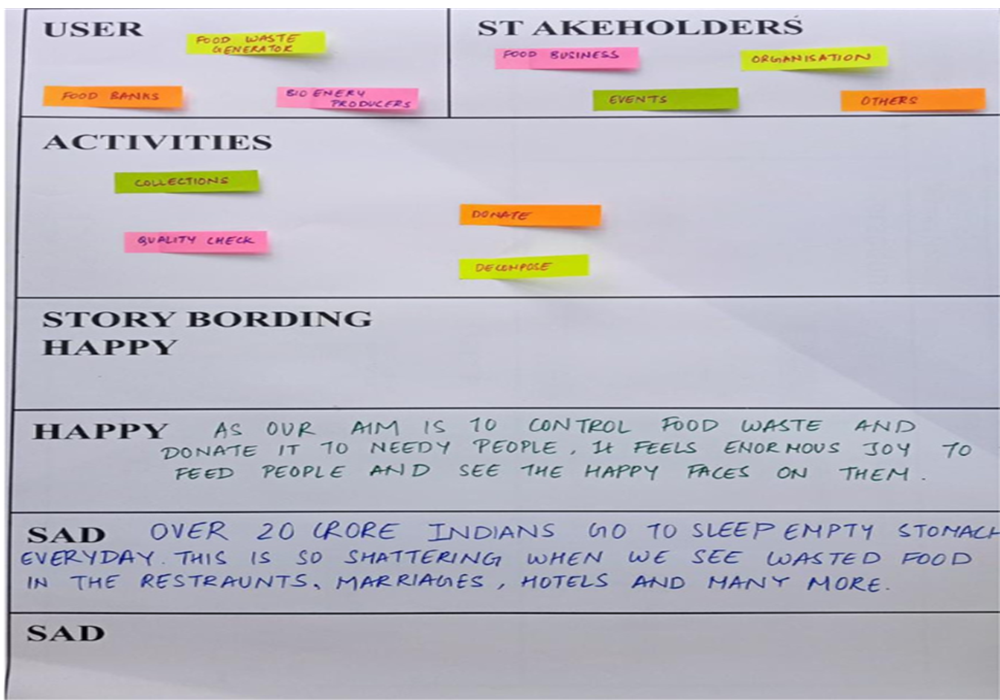 USER
FOOD WASTE
GENERATOR
FOOD BANKS
BIO ENERY
PRODUCERS
ST AKEHOLDERS
FOOD BUSINESS
ORGANISATION
EVENTS
OTHERS
ACTIVITIES
COLLECTIONS
DONATE
QUALITY CHECK
DECOMPOSE
STORY BORDING
HAPPY
HAPPY AS OUR AIM IS TO CONTROL FOOD WASTE AND
DONATE IT TO NEEDY PEOPLE. It FEELS ENORMOUS JOY TO
FEED PEOPLE AND SEE THE HAPPY FACES ON THEM.
SAD OVER 20 CRORE INDIANS GO TO SLEEP EMPTY STOMACH
EVERYDAY. THIS IS SO SHATTERING WHEN WE SEE WASTED FOOD
IN THE RESTRAUNTS, MARRIAGES, HOTELS AND MANY MORE.
SAD